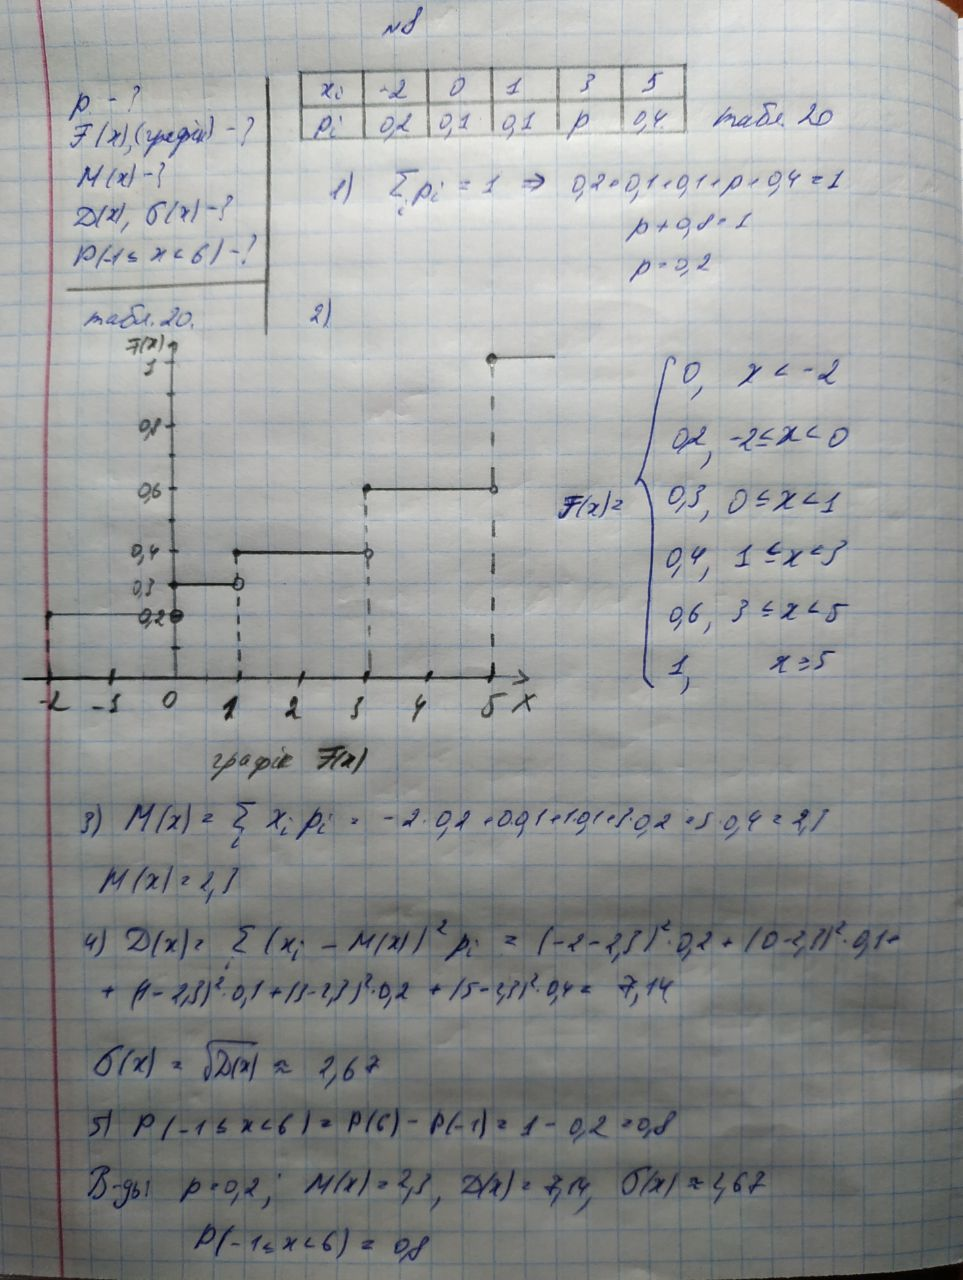 №8
xi -2 0 1 3 5
pi 0,2 0,1 0,1 p 0,4
табл. 20
p - ?
F(x), (графік) - ?
M(x) - ?
D(x), σ(x) - ?
P(-1 ≤ x < 6) - ?
табл. 20.
1) Σi pi = 1 ⇒ 0,2+0,1+0,1+p+0,4=1
p+0,8=1
p=0,2
2)
F(x)
1
0,8
0,6
0,4
0,3
0,2
-2 -1 0 1 2 3 4 5 X
графік F(x)
F(x)=
0, x < -2
0,2, -2≤x<0
0,3, 0≤x<1
0,4, 1≤x<3
0,6, 3≤x<5
1, x≥5
3) M(x) = Σi xi pi = -2·0,2+0·0,1+1·0,1+3·0,2+5·0,4=2,3
M(x)=2,3
4) D(x)= Σi (xi - M(x))² pi = (-2-2,3)²·0,2 + (0-2,3)²·0,1+
+ (1-2,3)²·0,1+(3-2,3)²·0,2 + (5-2,3)²·0,4= 7,14
σ(x) = √D(x) ≈ 2,67
5) P(-1≤x<6)=P(6)-P(-1)=1-0,2=0,8
В-дь: p=0,2; M(x)=2,3, D(x)=7,14, σ(x)≈2,67
P(-1≤x<6) = 0,8